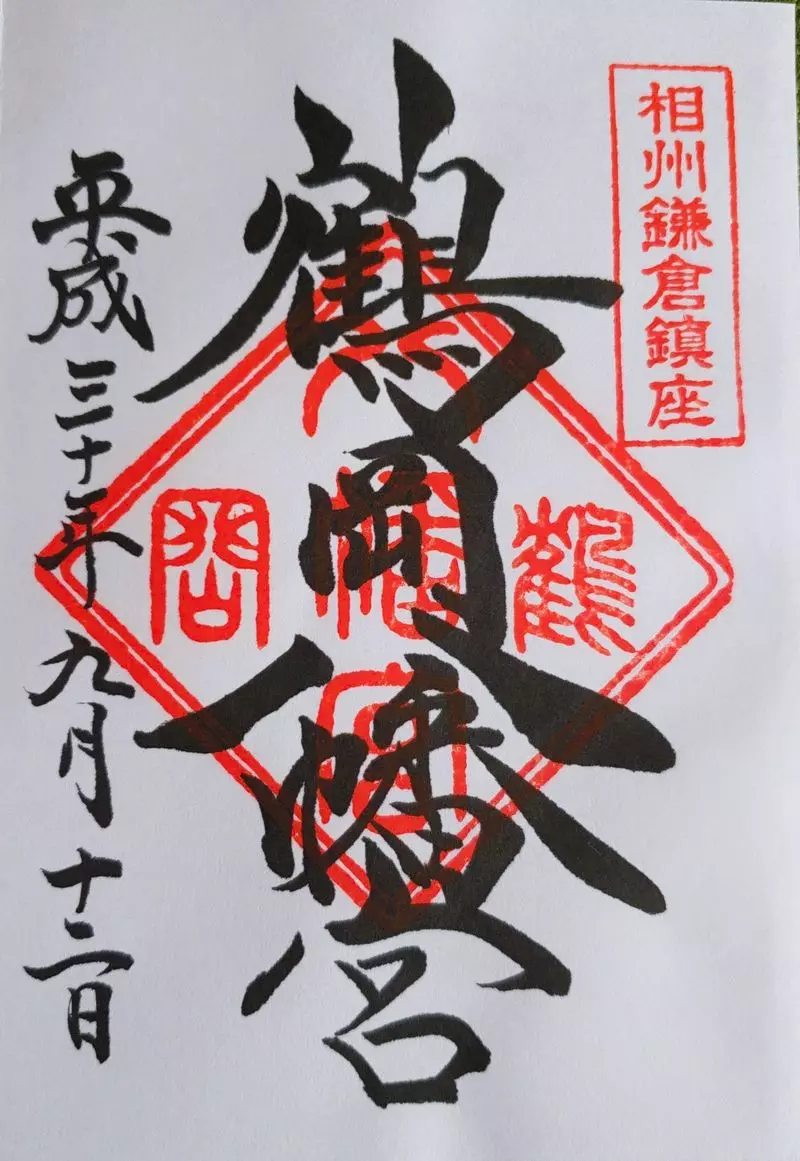 相州鎌倉鎮座
鶴岡八幡宮
鶴岡八幡宮
平成三十年九月十二日